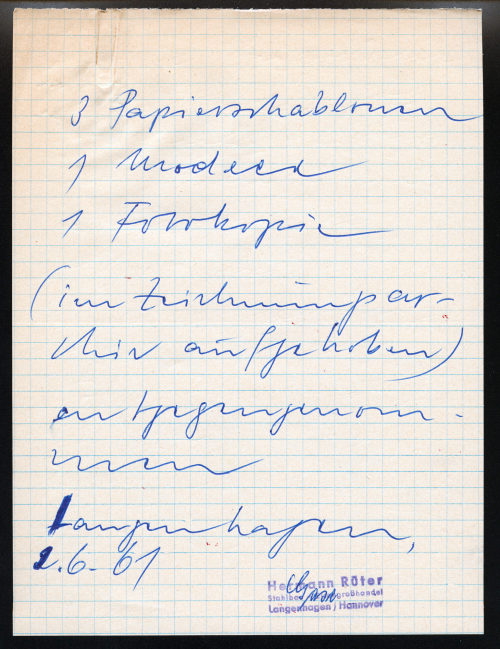 3 Papierschablonen
1 Modell
1 Fotokopie
(im Zeichnungsar-
chiv aufgehoben)
entgegengenom-
men
Langenhagen,
2.6.61
Hermann Rüter
Stahlbau Großhandel
Langenhagen / Hannover